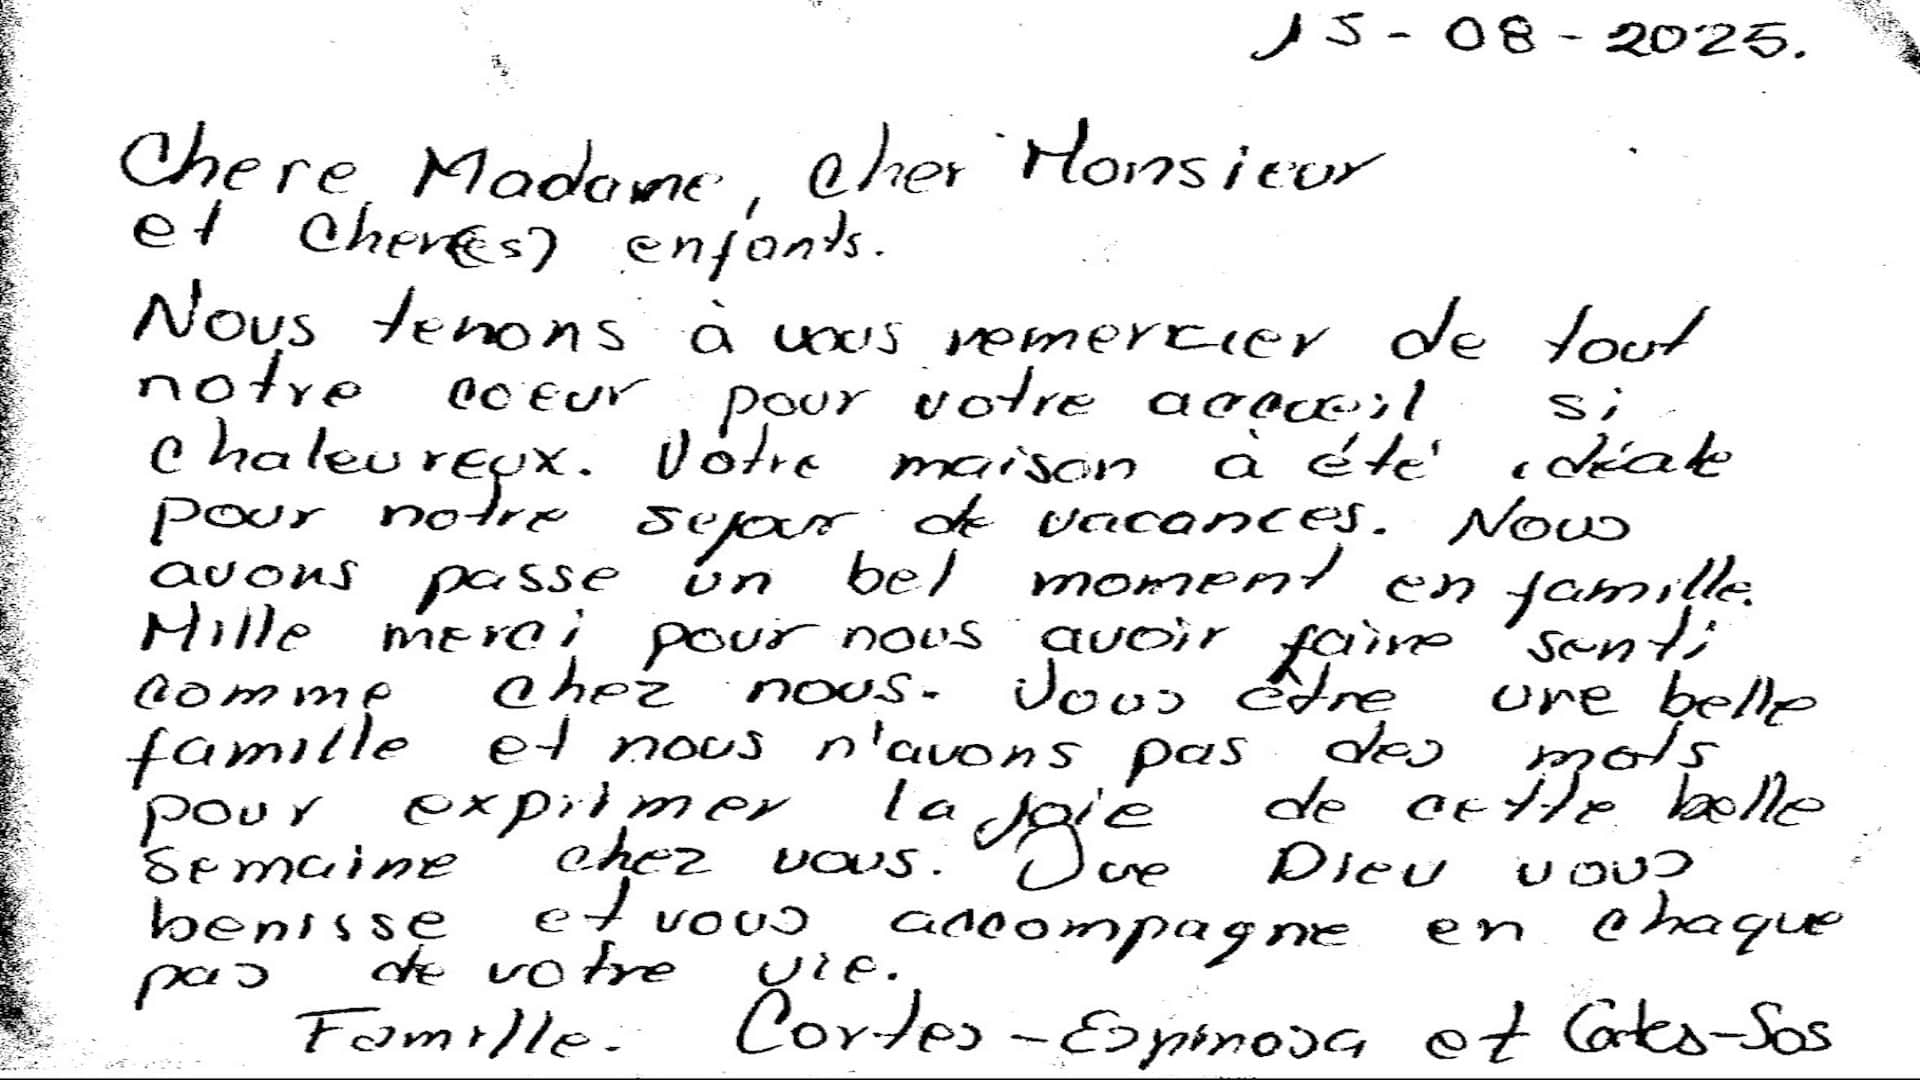 15-08-2025.
Chere Madame, cher Monsieur
et cher(es) enfants.
Nous tenons à vous remercier de tout
notre coeur pour votre accueil si
chaleureux. Votre maison à été idéale
pour notre sejour de vacances. Nous
avons passe un bel moment en famille.
Mille merci pour nous avoir faire senti
comme chez nous. Vous être une belle
famille et nous n'avons pas des mots
pour expriimer la joie de cette belle
semaine chez vous. Que Dieu vous
benisse et vous accompagne en chaque
pas de votre vie.
Famille. Cortes-Espinosa et Cortes-Sos